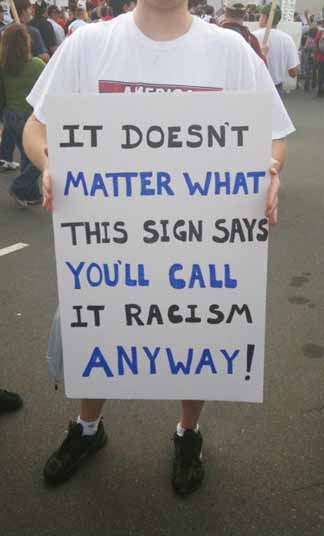 IT DOESN'T
MATTER WHAT
THIS SIGN SAYS
YOU'LL CALL
IT RACISM
ANYWAY!